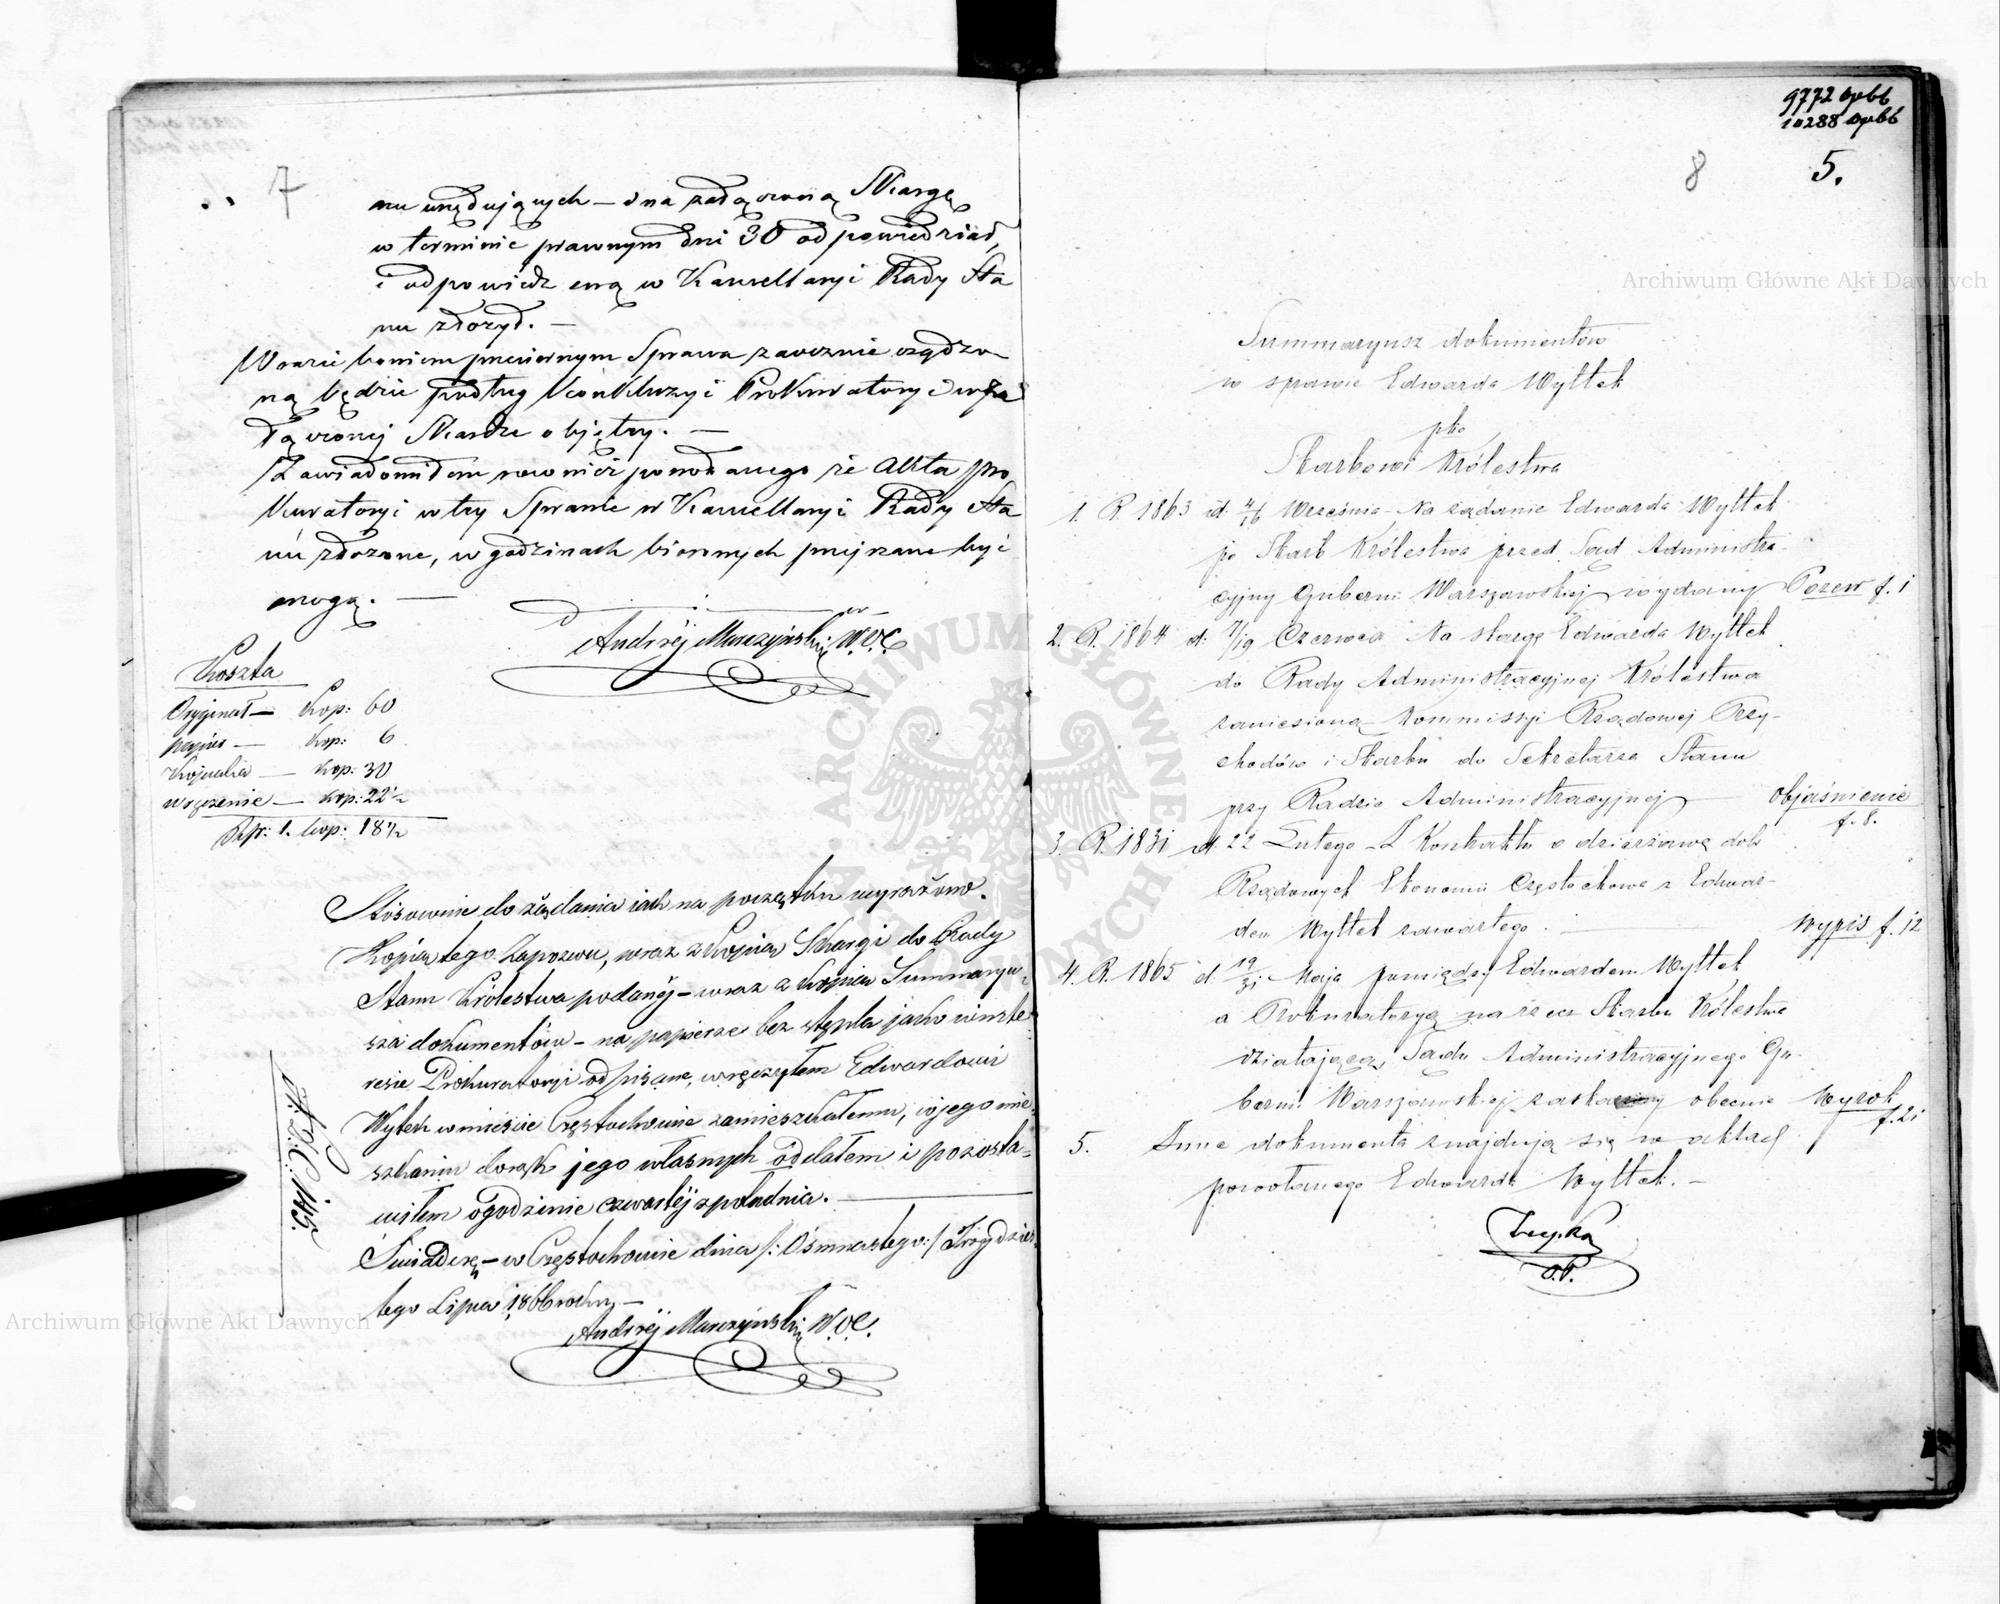 7
mu urzędujących – i na załączoną Skargę
w terminie prawnym dni 30 odpowiedział,
i odpowiedź swą w Kancellaryi Rady Sta
nu złożył. —
W razie bowiem przeciwnym Sprawa zaocznie osądzo-
ną będzie podług Konkluzyi Prokuratoryi w za
łączonej Skardze objętey. —
Zawiadomiłem rownież pozwanego że Akta pro
kuratoryi w tey Sprawie w Kancellaryi Rady Sta
nu złożone, w godzinach biorowych przejrzane być
mogą. —
Andrzéj Marczyński W.
Koszta
Oryginał — Kop: 60
papier — kop: 6
Kopialia — kop: 30
wręczenie — kop: 22½
Rsr: 1. kop: 18½
Stósownie do żądania iak na początku wyrażono.
Kopią tego Zapozwu, wraz z kopią Skargi do Rady
Stanu Królestwa podanéj – wraz z kopią Summaryu-
sza dokumentów – na papierze bez stępla jako w inte
resie Prokuratoryi odpisane, wręczyłem Edwardowi
Wyltek w mieście Częstochowie zamieszkałemu, w jego mie-
szkaniu do rąk jego własnych oddałem i pozosta-
wiłem o godzinie czwartéj z południa. —
Świadczę – w Częstochowie dnia /: Ośmnastego :/ Trzydzies-
tego Lipca 1866 roku —
Andrzéj Marczyński W.
9772 op66
10288 op66
8
5.
Summaryusz dokumentów
w sprawie Edwarda Wyltek
pko
Skarbowi Królestwa
1. R. 1863 d. 4/16 Września Na żądanie Edwarda Wyltek
po Skarb Królestwa przed Sąd Administra-
cyjny Gubernii Warszawskiej wydany Pozew f. 1
2. R. 1864 d. 7/19 Czerwca Na skargę Edwarda Wyltek
do Rady Administracyjnej Królestwa
zaniesioną Kommissyi Rządowej Przy-
chodów i Skarbu do Sekretarza Stanu
przy Radzie Administracyjnej — objaśnienie
f. 8.
3. R. 1831 d. 22 Lutego – Z Kontraktu o dzierżawę dób
Rządowych Ekonomii Częstochowa z Edwar-
dem Wyltek zawartego. — Wypis f. 12
4. R. 1865 d. 19/31 Maja pomiędzy Edwardem Wyltek
a Prokuratoryą na rzecz Skarbu Królestwa
działającą, Sądu Administracyjnego Gu-
bernii Warszawskiej zaskarżony obecnie Wyrok
f. 21
5. Inne dokumenta znajdują się w aktach
powołanego Edwarda Wyltek. —
O.P.
Archiwum Główne Akt Dawnych
Archiwum Główne Akt Dawnych
ARCHIWUM GŁÓWNE AKT DAWNYCH